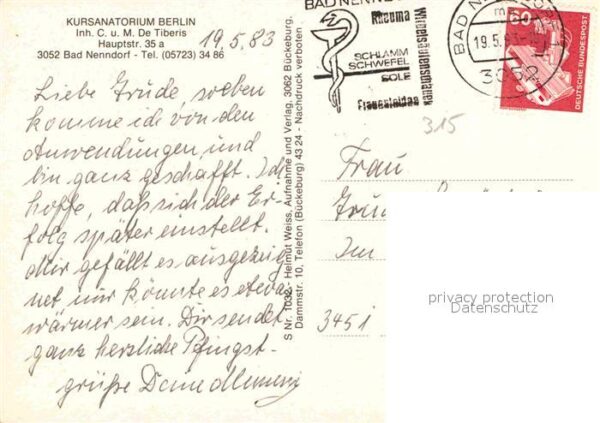 KURSANATORIUM BERLIN
Inh. C. u. M. De Tiberis
Hauptstr. 35 a
3052 Bad Nenndorf - Tel. (05723) 34 86
19.5.83
Liebe Trude, soeben
komme ich von den
Anwendungen, und
bin ganz geschafft. Ich
hoffe, daß sich der Er-
folg später einstellt.
Mir gefällt es ausgezeig
net nur könnte es etwas
wärmer sein. Dir sendet
ganz herzliche Pfingst-
grüße Deine
S Nr. 1032 - Helmut Weiss, Aufnahme und Verlag, 3062 Bückeburg,
Dammstr. 10, Telefon (Bückeburg) 43 24 - Nachdruck verboten
Rheuma
Wirbelsäulensmanek
SCHLAMM
SCHWEFEL
SOLE
Frauenleiden
BAD NENNDORF
19.5.83
3052
60
DEUTSCHE BUNDESPOST
315
Frau
Im
3451
privacy protection
Datenschutz